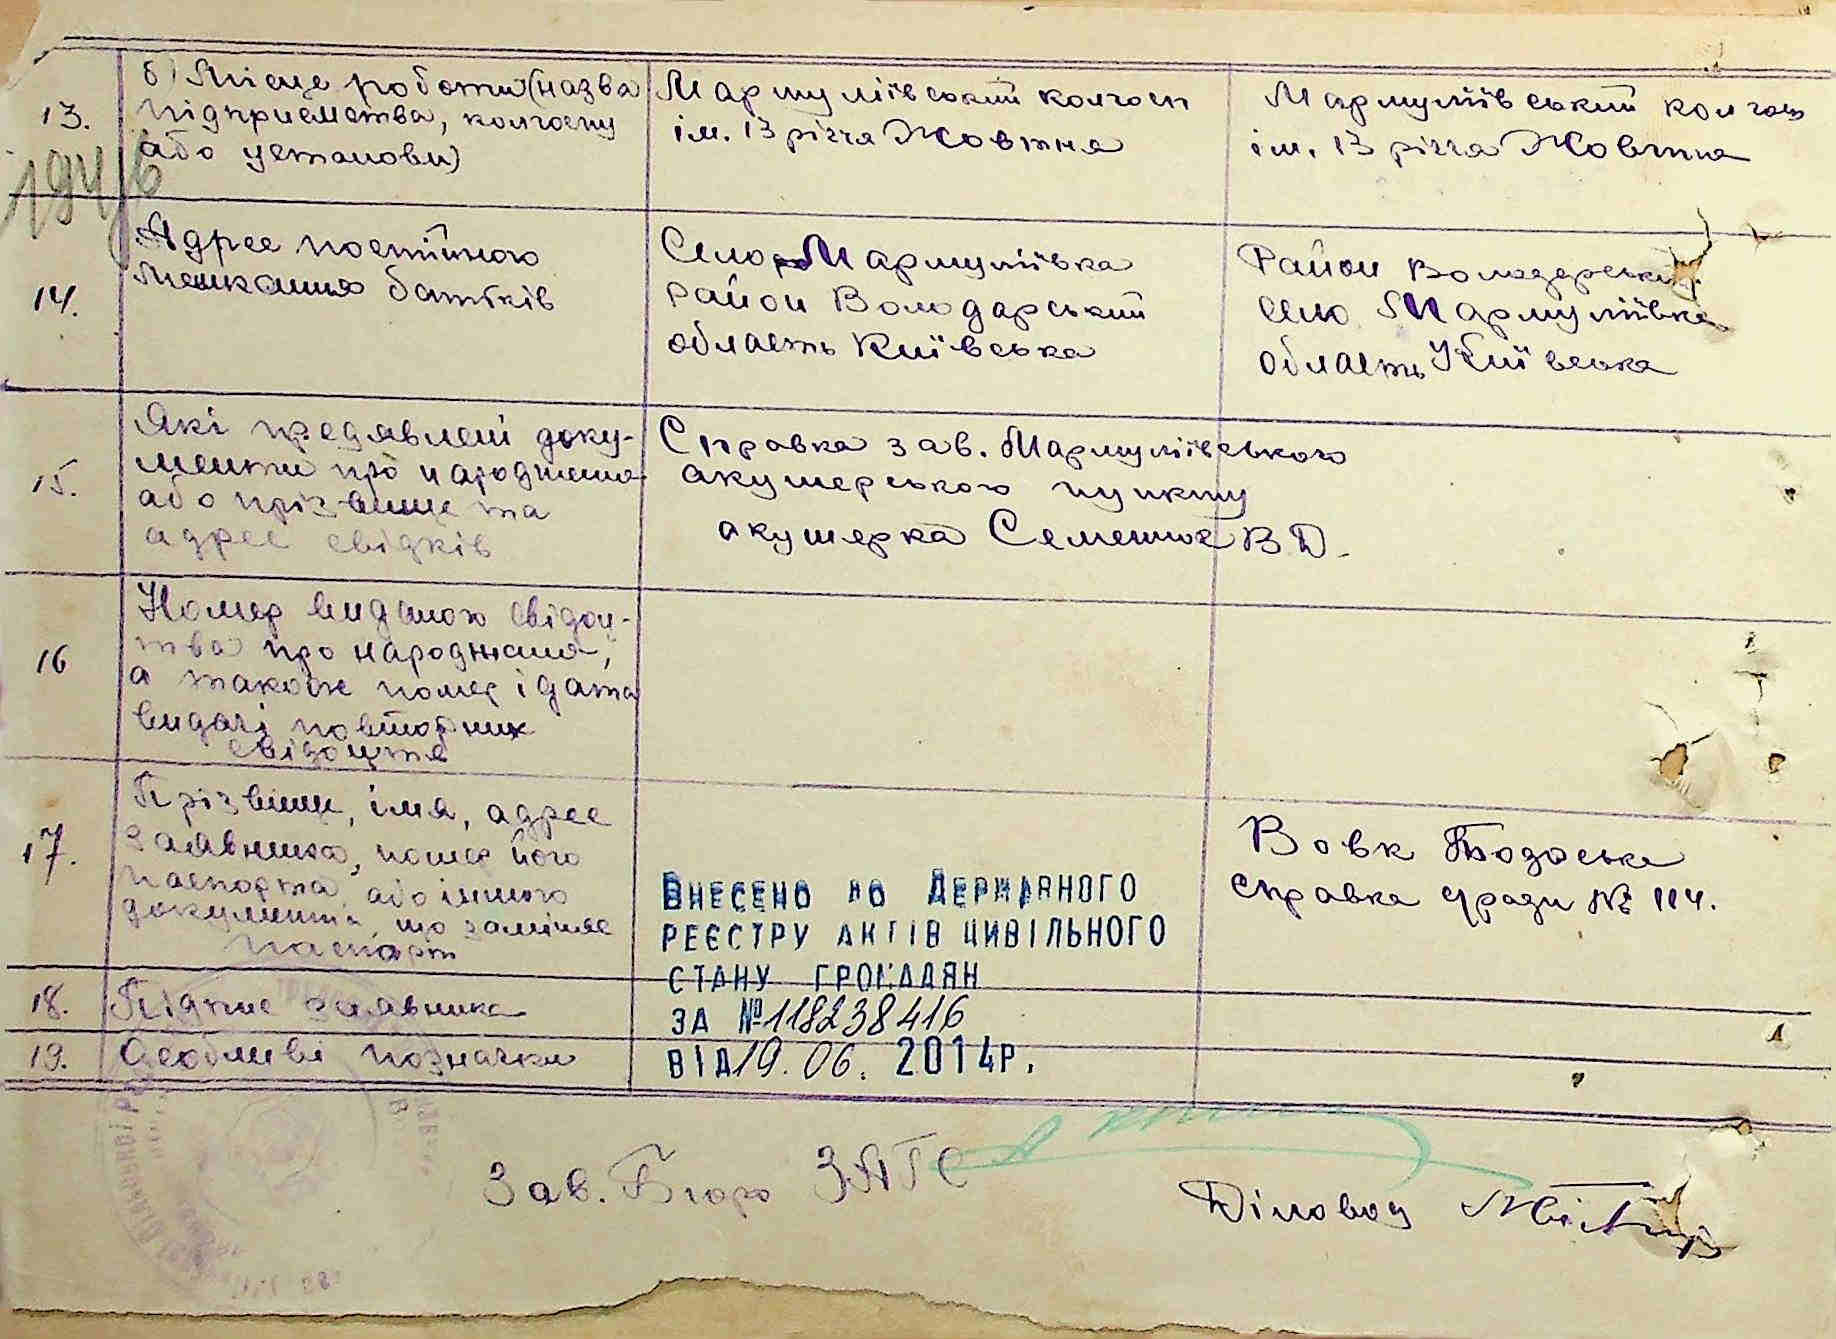 13.
б) Місце роботи (назва
підприємства, колгоспу
або установи)
Мармуліївський колгосп
ім. 13 річчя Жовтня
Мармуліївський колгосп
ім. 13 річчя Жовтня
194
14.
Адрес постійного
мешкання батьків
Село Мармуліївка
район Володарський
область Київська
Район Володарський
село Мармуліївка
область Київська
15.
Які предявлені доку-
менти про народження
або прізвище та
адрес свідків
Справка зав. Мармуліївського
акушерського пункту
акушерка Семенюк В Д.
16
Номер виданого свідоц-
тва про народження,
а також номер і дата
видачі повторних
свідоцтв
17.
Прізвище, імя, адрес
заявника, номер його
паспорта або іншого
документа що заміняє
паспорт
Вовк Тодоська
справка с/ради № 114.
ВНЕСЕНО ДО ДЕРЖАВНОГО
РЕЄСТРУ АКТІВ ЦИВІЛЬНОГО
СТАНУ ГРОМАДЯН
ЗА № 118238416
ВІД 19.06. 2014Р.
18.
Підпис заявника
19.
Особливі позначки
Зав. Бюро ЗАГС
Діловод